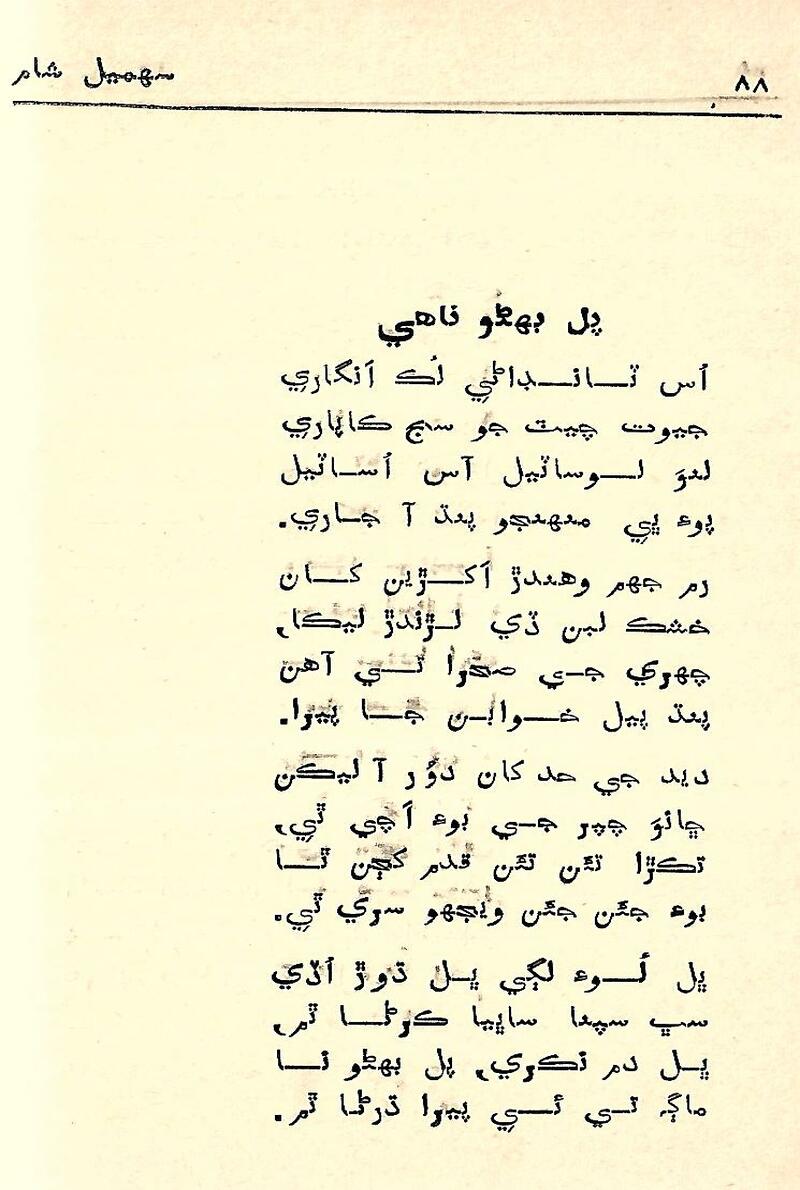 ۸۸
سهيل شام
پل بهڻو ناهي
اُس ٽانڊاڻي لُڪ اَنگاري
جيوت چيٽ جو سج ڪاپاري
لنوَ لوساٽيل آس اُساٽيل
پوءِ ڀي منهنجو پنڌ آ جاري.
رم جهم وهندڙ اکڙين کان
خشڪ لبن ڏي لڙندڙ ليڪا،
چهري جي صحرا تي آهن
پنڌ پيل خوابن جا پيرا.
ديد جي حد کان دؤر آ ليڪن
ڇانوَ ڇپر جي بوءِ اَچي ٿي،
ٿڪڙا تئن تئن قدم کڄن ٿا
بوءِ جئن جئن ويجهو سري ٿي.
ڀل لُوءِ لڳي ڀل ڌوڙ اُڏي
سڀ سپنا ساڀيا ڪرڻا ٿم،
ڀل دم نڪري، پل بهڻو نا
ماڳ تي ئي پيرا ڌرڻا ٿم.